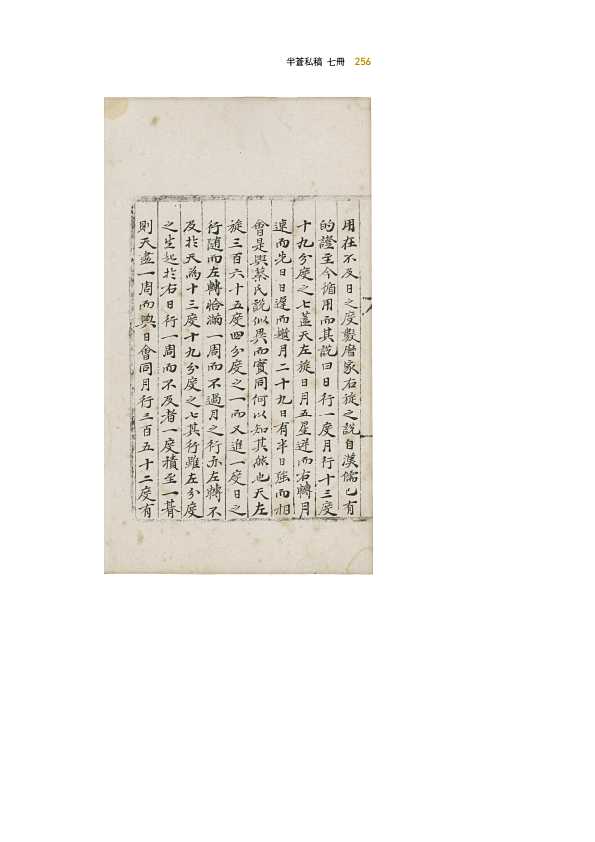 半蒼私稿 七冊 256
用在不及日之度數曆家右旋之說自漢儒已有
的證至今循用而其說曰日行一度月行十三度
十九分度之七蓋天左旋日月五星逆而右轉月
速而先日日遲而 月二十九日有半日強而相
會是與蔡氏說似異而實同何以知其然也天左
旋三百六十五度四分度之一而又進一度日之
行隨而左轉恰滿一周而不過月之行亦左轉不
及於天爲十三度十九分度之七其行雖左分度
之生起於右日行一周而不及者一度積至一朞
則天盡一周而與日會同月行三百五十二度有